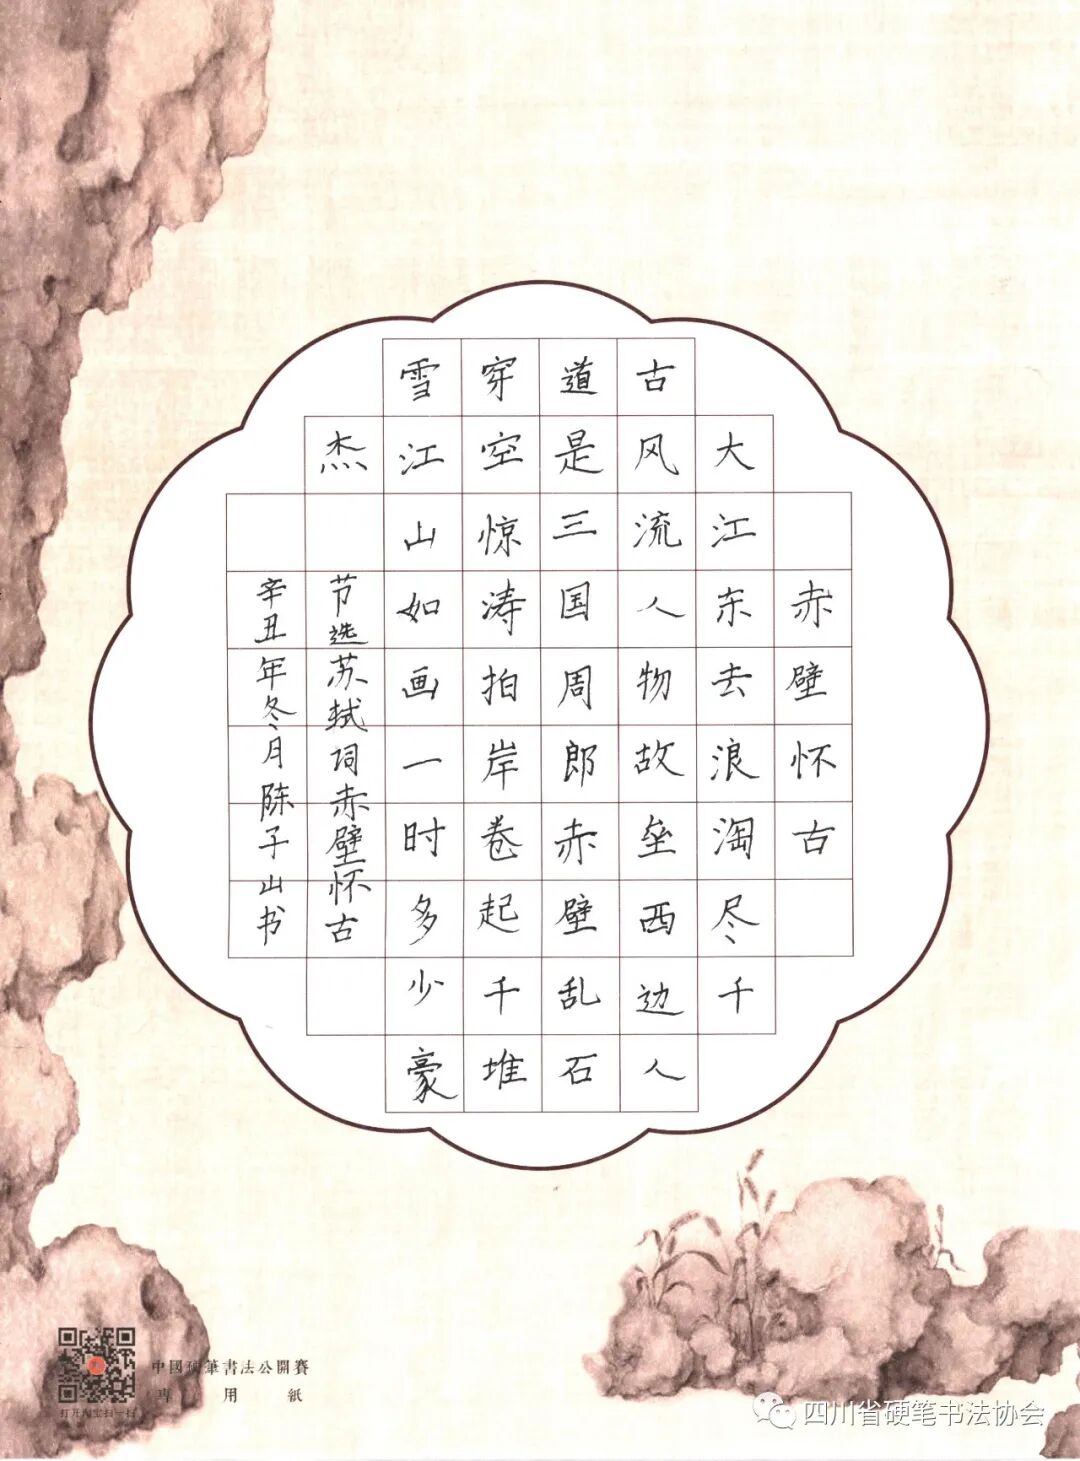 赤壁怀古
大江东去浪淘尽千
古风流人物故垒西边人
道是三国周郎赤壁乱石
穿空惊涛拍岸卷起千堆
雪江山如画一时多少豪
杰
节选苏轼词赤壁怀古
辛丑年冬月陈子山书
中國硬筆書法公開賽
專用紙
打开淘宝扫一扫
四川省硬笔书法协会